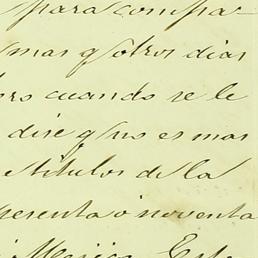 para compa-
mas q otros dias
ors cuando se le
dire q no es mas
titulos de la
esenta o noventa
Mejico Este